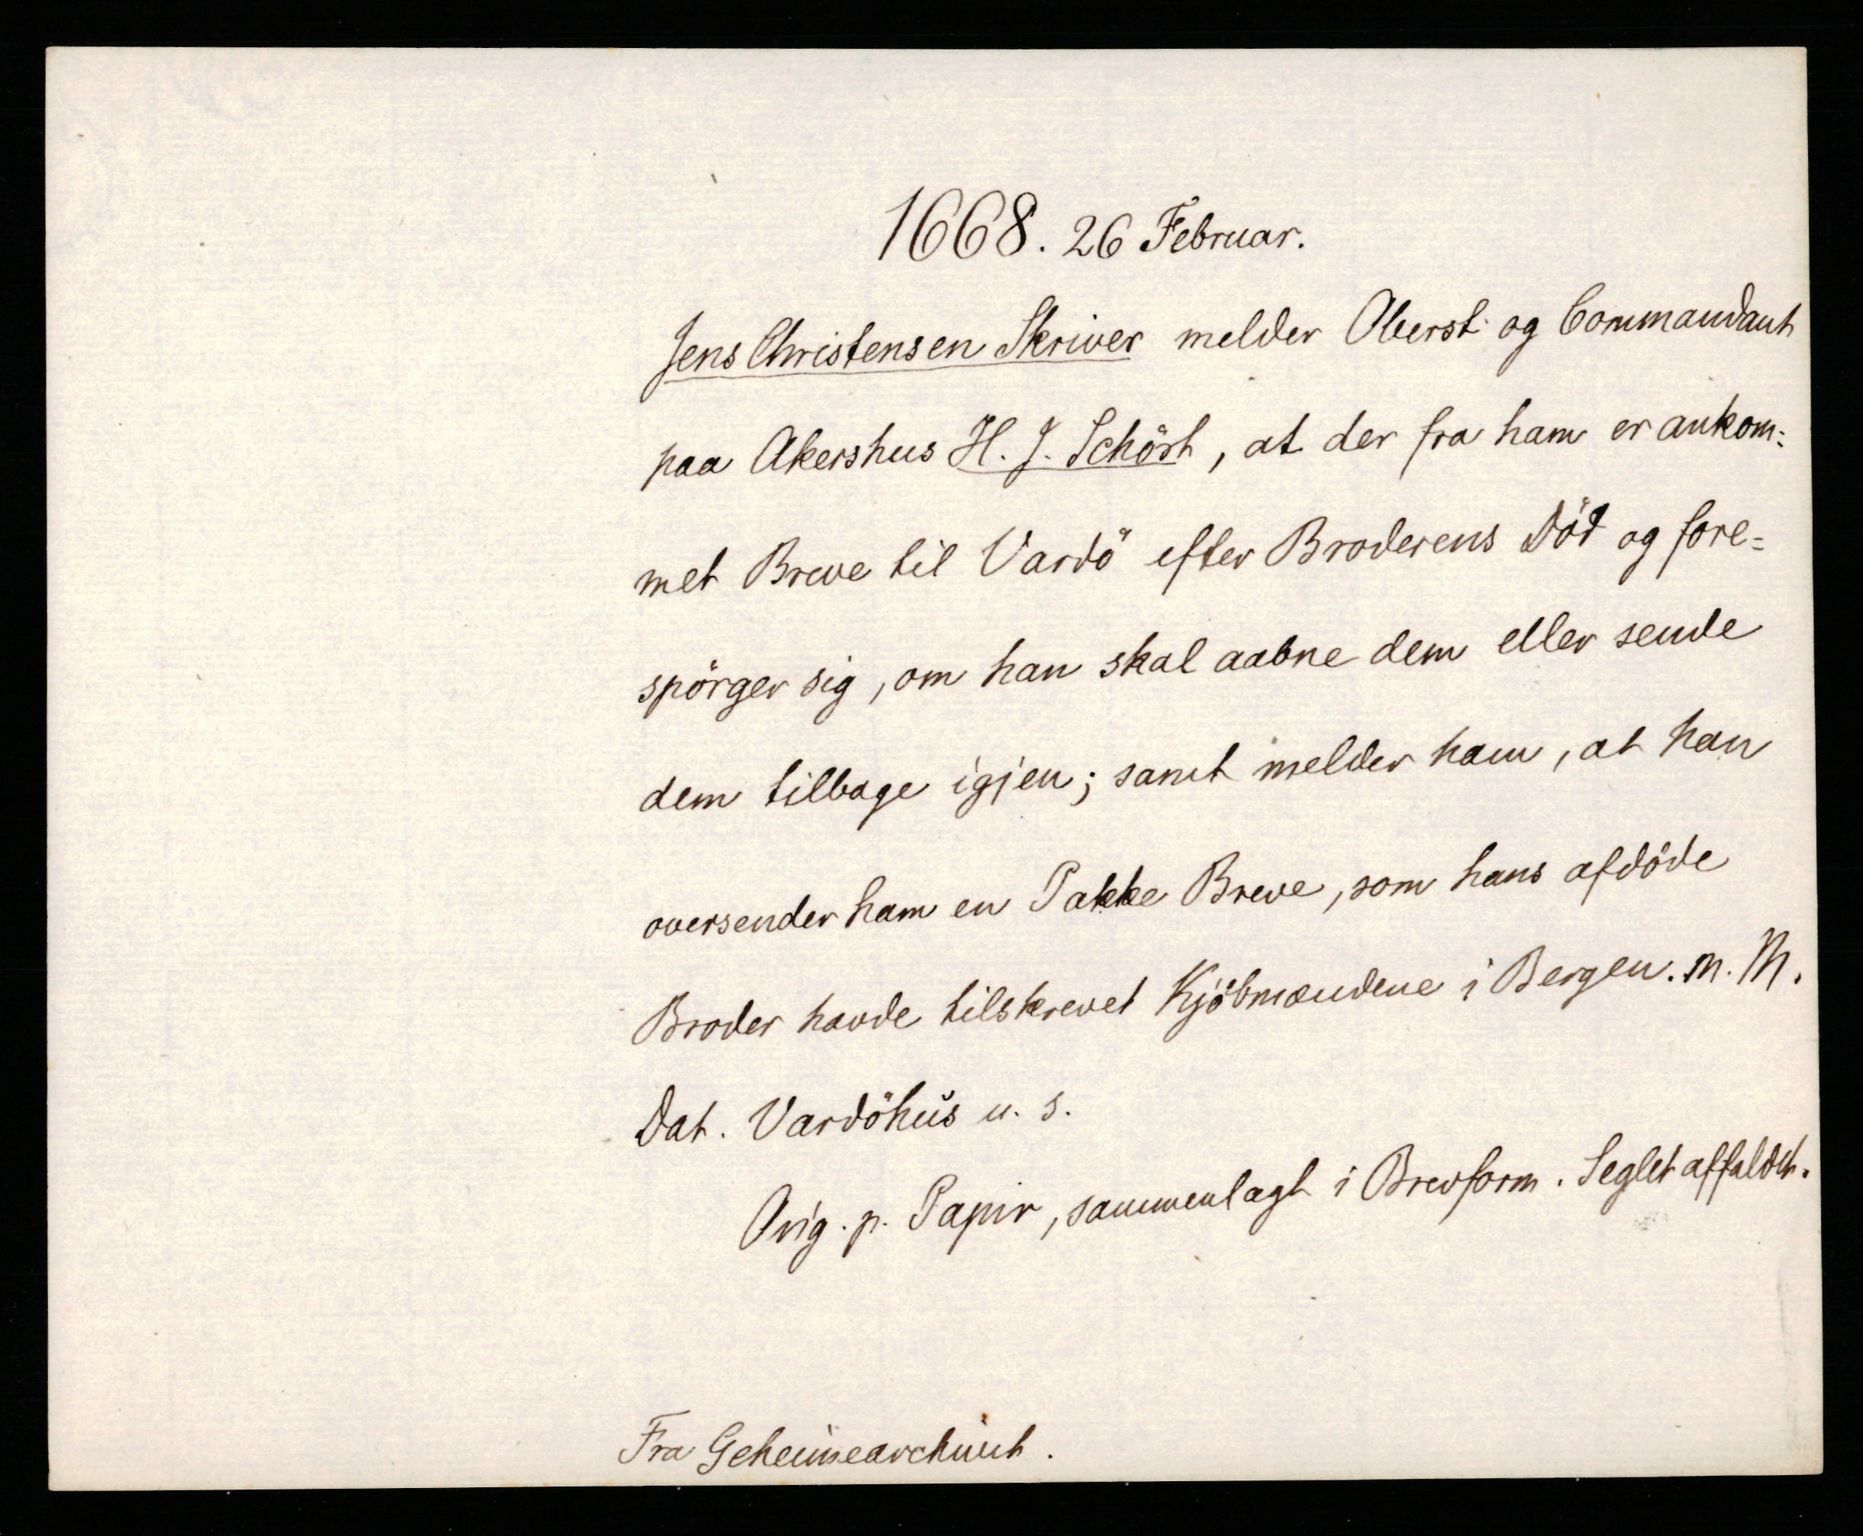 1668. 26 Februar.
Jens Christensen Skriver melder Oberst og Commandant
paa Akershus H. J. Schört, at der fra ham er ankom:
met Breve til Vardö efter Broderens Död og fore=
spörger sig, om han skal aabne dem eller sende
dem tilbage igjen; samt melder ham, at han
oversender ham en Pakke Breve, som hans afdöde
Broder havde tilskrevet Kjöbmændene i Bergen. m. M.
Dat. Vardöhus u. s.
Orig. p. Papir, sammenlagt i Brevform. Seglet affaldet.
Fra Geheimearchivet.